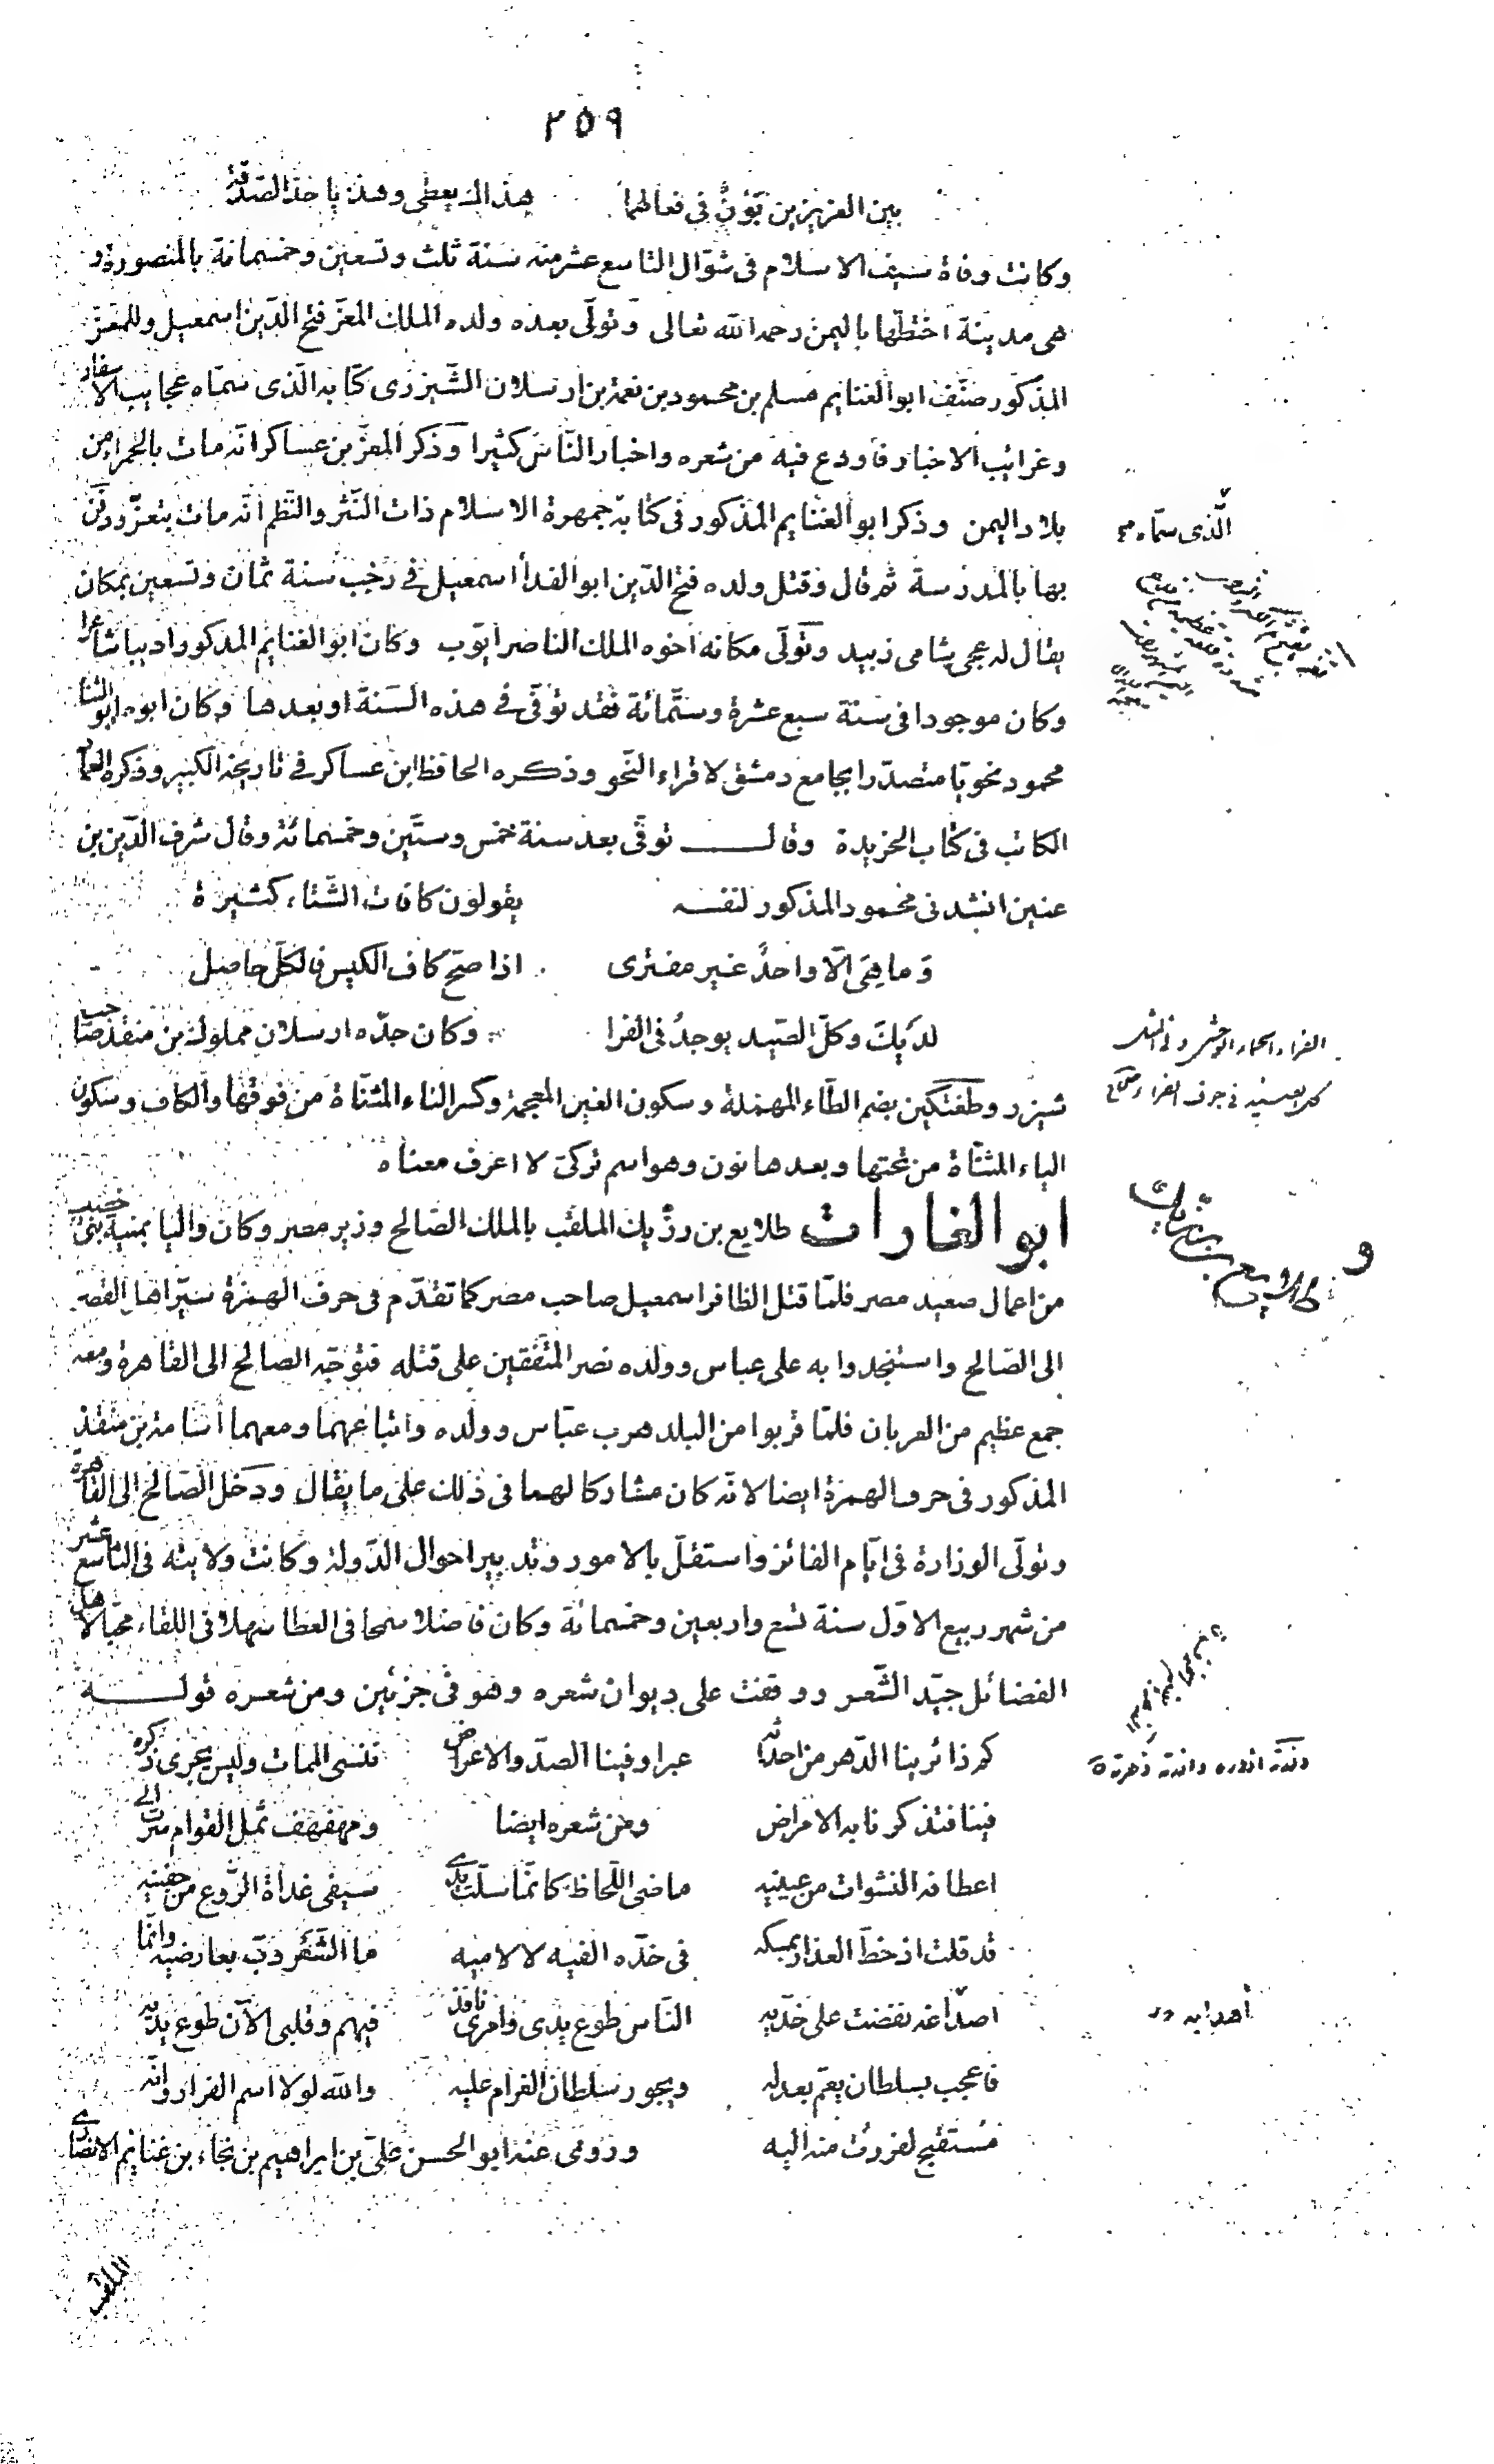 ٢٥٩
بين العزيزين بَوْنٌ في فعالهما هذاك يعطى وهذا ياخذ الصّدقة
وكانت وفاة سيف الاسلام فى شوّال التاسع عشر منه سنة ثلث وتسعين وخمسمائة بالمنصورة و
هى مدينة اختطّها باليمن رحمه الله تعالى وتولّى بعده ولده الملك المعزّ فتح الدّين اسمعيل وللمعزّ
المذكور صنّف ابو الغنايم مسلم بن محمود بن نعمة بن ارسلان الشّيزرى كتابه الّذى سمّاه عجايب الاسفار
وغرائب الاخبار فاودع فيه من شعره واخبار النّاس كثيرا وذكر المعزّ بن عساكر انّه مات بالحمرا من
بلاد اليمن وذكر ابو الغنايم المذكور فى كتابه جمهرة الاسلام ذات النّثر والنّظم انّه مات بتعزّ ودفن
الّذى سمّاه
بها بالمدرسة ثم قال وقتل ولده فتح الدّين ابو الفدا اسمعيل في رجب سنة ثمان وتسعين بمكان
يقال له عجى شامى زبيد وتولّى مكانه اخوه الملك الناصر ايّوب وكان ابو الغنايم المذكور اديبا شاعرا
وكان موجودا فى سنة سبع عشرة وستّمائة فقد توفّى في هذه السّنة او بعدها وكان ابوه ابو الثنا
محمود نحويّا متصدّرا بجامع دمشق لاقراء النّحو وذكره الحافظ ابن عساكر في تاريخه الكبير وذكره العماد
الكاتب فى كتاب الخريدة وقالـــ توفّى بعد سنة خمس وستّين وخمسمائة وقال شرف الدّين بن
عنين انشدنى محمود المذكور لنفسه يقولون كافات الشّتاء كثيرة
وَما هِىَ الّا واحدٌ غير مفترى اذا صحّ كاف الكيس فالكلّ حاصل
لديكَ وكلّ الصّيد يوجدُ فى الفرا وكان جدّه ارسلان مملوك بن منقذ صاحب
الفراء الحمار الوحشى وفى المثل
كل الصيد فى جوف الفراء
شيزر وطغتكين بضم الطّاء المهملة وسكون الغين المعجمة وكسر التاء المثنّاة من فوقها والكاف وسكون
الياء المثنّاة من تحتها وبعدها نون وهو اسم تركىّ لا اعرف معناه
ابو الغارات طلايع بن رزّيك الملقّب بالملك الصّالح وزير مصر وكان واليا بمنية بنى خصيب
طلايع بن رزيك
من اعمال صعيد مصر فلمّا قتل الظافر اسمعيل صاحب مصر كما تقدّم فى حرف الهمزة سيّر اهل القصر
الى الصّالح واستنجدوا به على عباس وولده نصر المتّفقين على قتله فتوجّه الصالح الى القاهرة ومعه
جمع عظيم من العربان فلمّا قربوا من البلد هرب عبّاس وولده واتباعهما ومعهما أسامة بن منقذ
المذكور فى حرف الهمزة ايضا لانّه كان مشاركا لهما فى ذلك على ما يقال ودخل الصّالح الى القاهرة
وتولّى الوزارة فى ايّام الفائز واستقلّ بالامور وتدبير احوال الدّولة وكانت ولايته فى التاسع عشر
من شهر ربيع الاوّل سنة تسع واربعين وخمسمائة وكان فاضلا سمحا فى العطا سهلا فى اللقاء محبّا لاهل
الفضائل جيّد الشّعر ووقفت على ديوان شعره وهو فى جزئين ومن شعره قولـــه
كم ذا ئرينا الدّهر من احداثه عبرا وفينا الصدّ والاعراض ننسى الممات وليس يجرى ذكره
فينا فتذكرنا به الامراض ومن شعره ايضا ومهفهف ثمل القوام سرت الى
اعطافه النشوات من عينيه ماضى اللّحاظ كانّما سلّت يدى سيفى غداة الرّوع من جفنيه
قد قلت اذ خطّ العذار بمسكه فى خدّه الفيه لا لاميه ما الشّعر دبّ بعارضيه وانّما
اصداغه نفضت على خدّيه النّاس طوع يدى وامرى نافذ فيهم وقلبى الآن طوع يديه
فاعجب بسلطان يعمّ بعدله ويجور سلطان الغرام عليه والله لولا اسم الفرار وانّه
مُستقبح لفررتُ منه اليه وروى عنه ابو الحسن علىّ بن ابراهيم بن نجاء بن غنايم الانصارى
الملقب